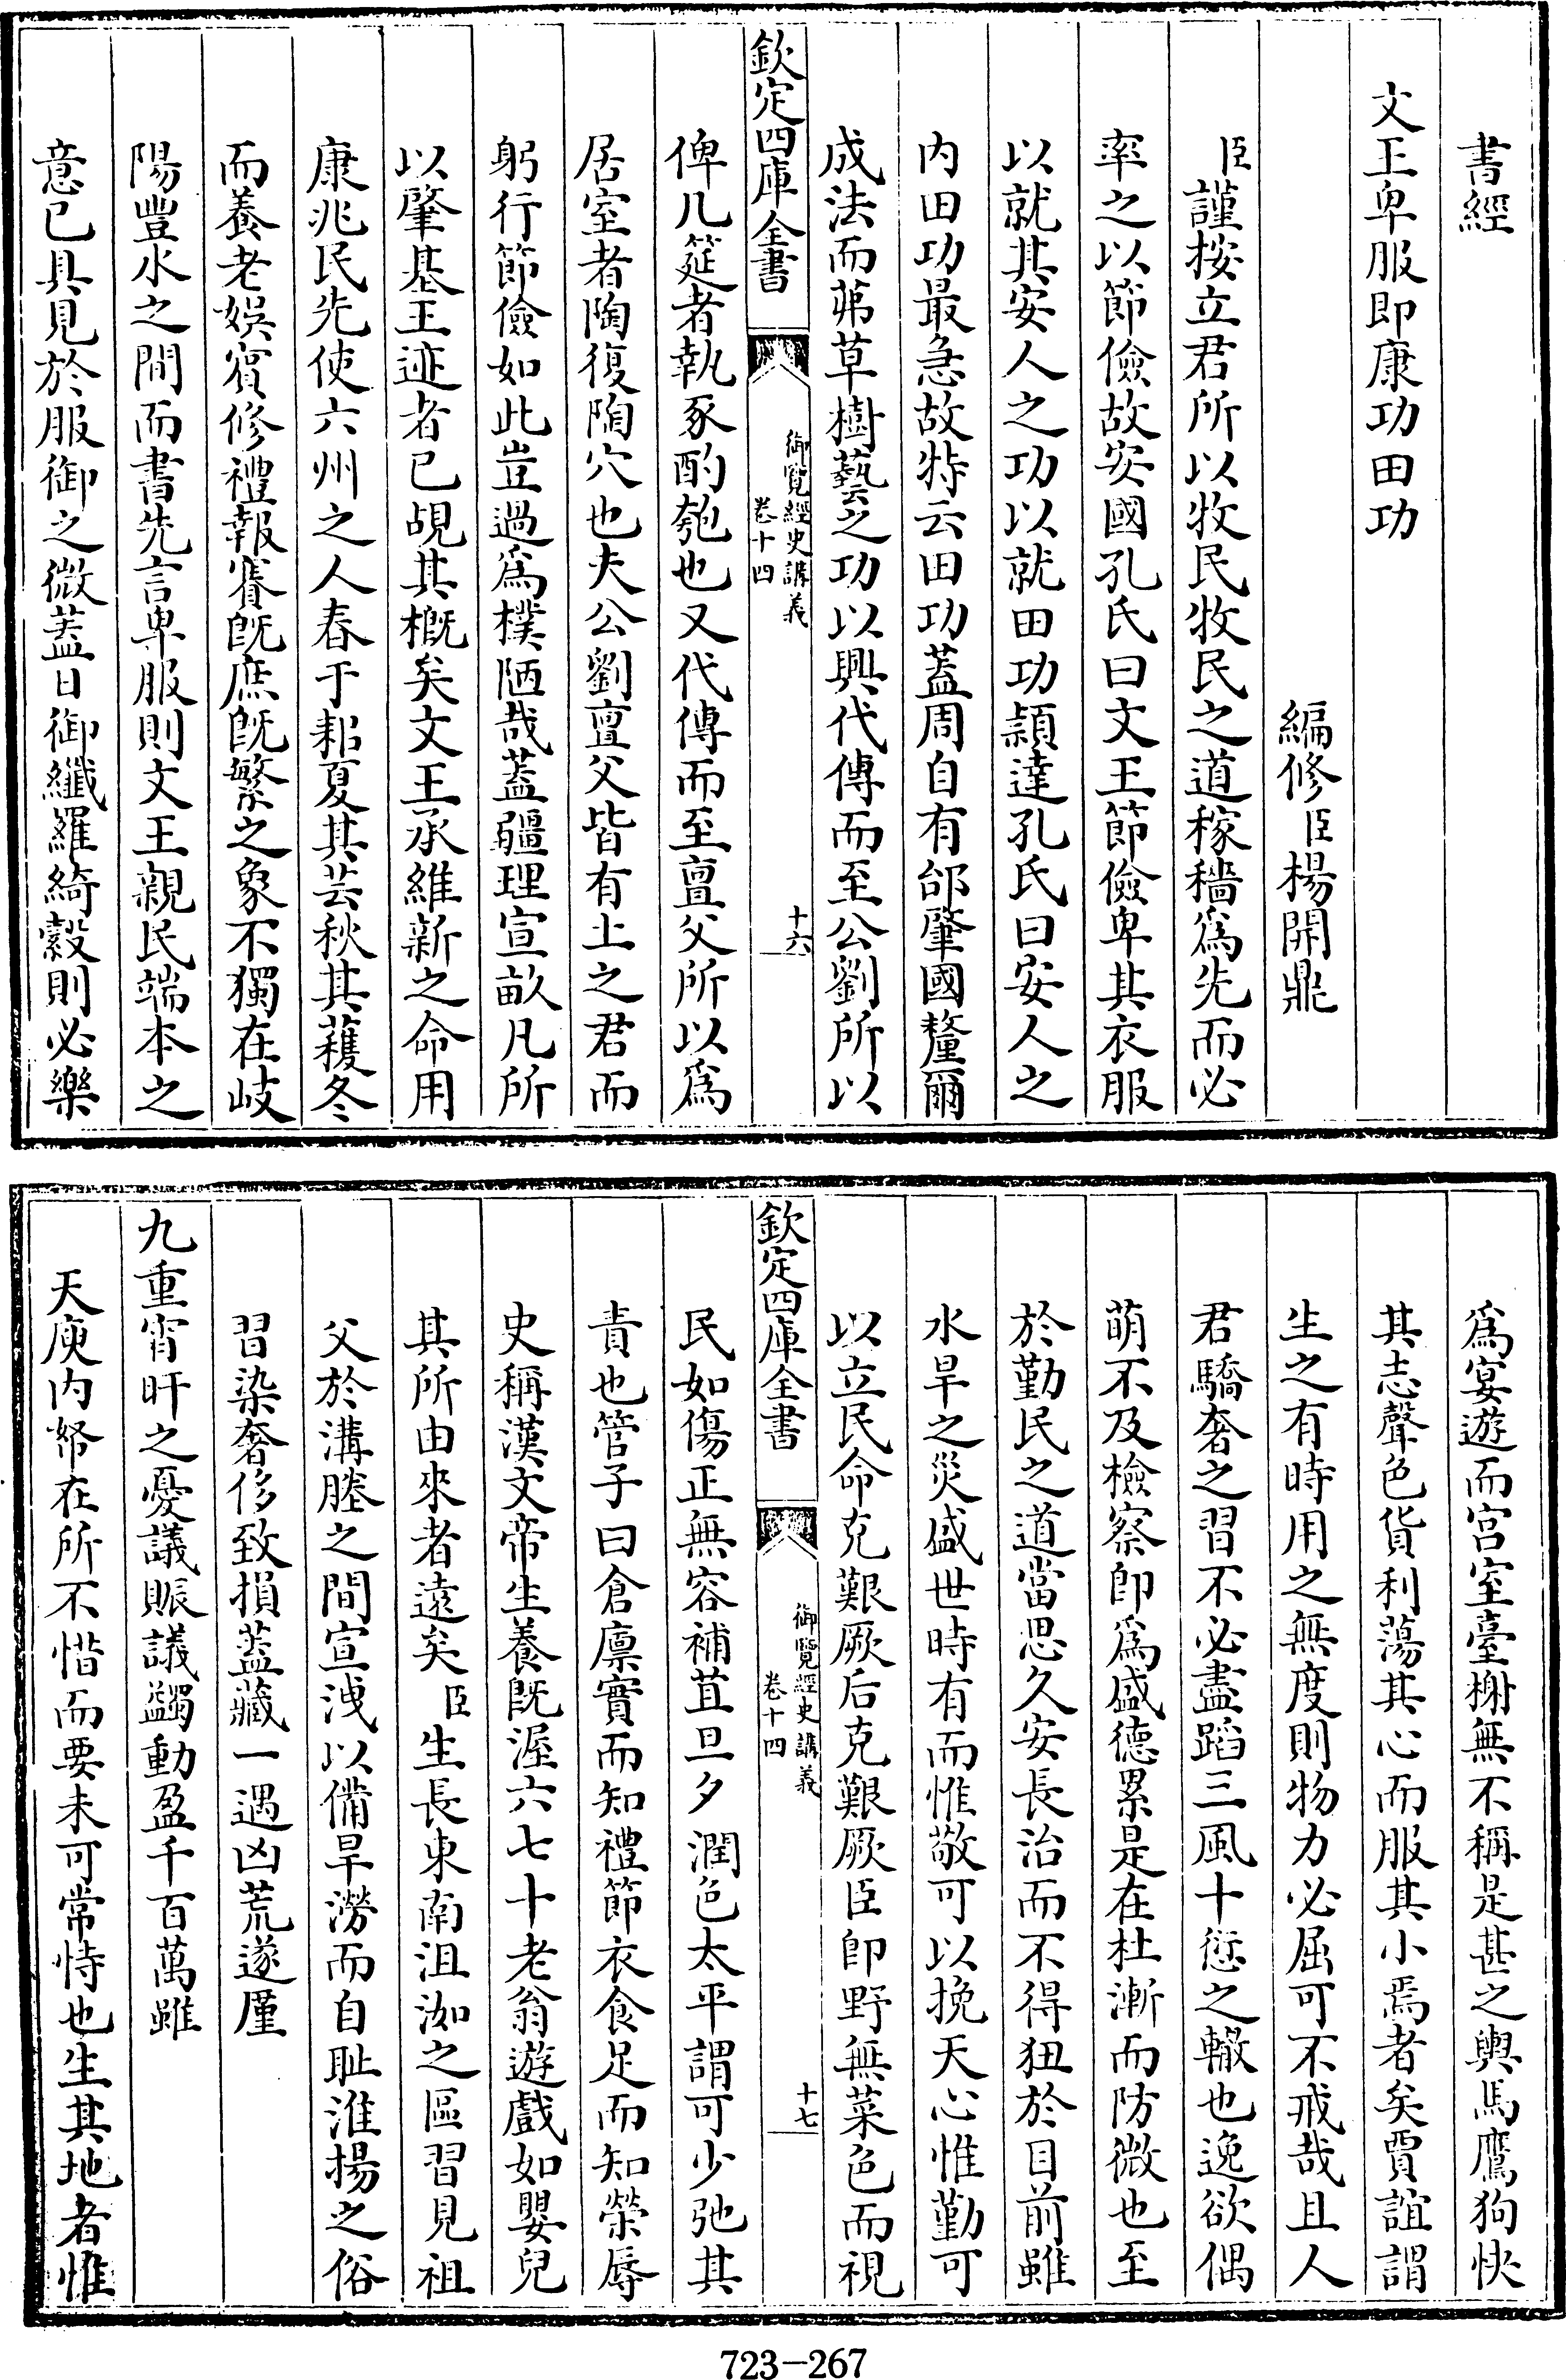 書經
文王卑服即康功田功
編修臣楊開鼎
臣謹按立君所以牧民牧民之道稼穡爲先而必
率之以節儉故安國孔氏曰文王節儉卑其衣服
以就其安人之功以就田功頴達孔氏曰安人之
内田功最急故特云田功蓋周自有邰肇國釐爾
成法而茀草樹藝之功以興代傳而至公劉所以
欽定四庫全書
御覽經史講義
卷十四
十六
俾几筵者執豕酌匏也又代傳而至亶父所以爲
居室者陶復陶穴也夫公劉亶父皆有土之君而
躬行節儉如此豈過爲樸陋哉蓋疆理宣畝凡所
以肇基王迹者已覘其概矣文王承維新之命用
康兆民先使六州之人春于耜夏其芸秋其穫冬
而養老娯賓修禮報賽旣庶旣繁之象不獨在岐
陽豐水之間而書先言卑服則文王親民端本之
意已具見於服御之微蓋日御纖羅綺縠則必樂
爲宴遊而宫室臺榭無不稱是甚之輿馬鷹狗快
其志聲色貨利蕩其心而服其小焉者矣賈誼謂
生之有時用之無度則物力必屈可不戒哉且人
君驕奢之習不必盡蹈三風十愆之轍也逸欲偶
萌不及檢察卽爲盛德累是在杜漸而防微也至
於勤民之道當思久安長治而不得狃於目前雖
水旱之災盛世時有而惟敬可以挽天心惟勤可
以立民命克艱厥后克艱厥臣卽野無菜色而視
欽定四庫全書
御覽經史講義
卷十四
十七
民如傷正無容補苴旦夕潤色太平謂可少弛其
責也管子曰倉廪實而知禮節衣食足而知榮辱
史稱漢文帝生養旣渥六七十老翁遊戲如嬰兒
其所由來者遠矣臣生長東南沮洳之區習見祖
父於溝塍之間宣洩以備旱澇而自耻淮揚之俗
習染奢侈致損蓋藏一遇凶荒遂厪
九重宵旰之憂議賑議蠲動盈千百萬雖
天庾内帑在所不惜而要未可常恃也生其地者惟
723-267